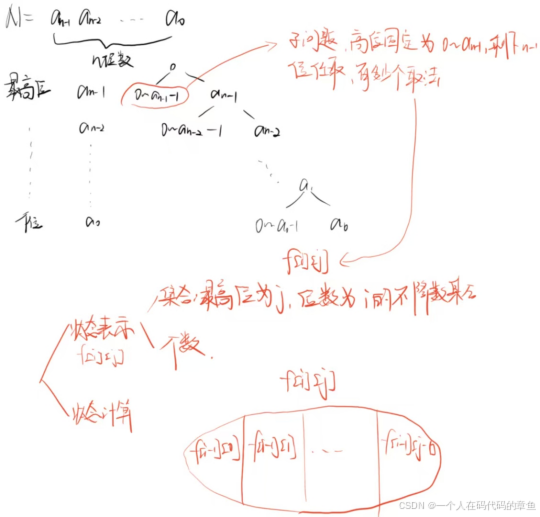 N= aₙ₋₁ aₙ₋₂ ... a₀
n位数
子问题,高位固定为0~aₙ₋₁,剩下n-1
位任取,有多少个取法
0
最高位 aₙ₋₁ 0~aₙ₋₁-1 aₙ₋₁
aₙ₋₂ 0~aₙ₋₂-1 aₙ₋₂
a₁
下位 a₀ 0~a₁-1 a₀
f[i][j]
集合:最高位为j,位数为i的不降数集合
状态表示
f[i][j]
个数.
状态计算
f[i][j]
f[i-1][0] f[i-1][1] ...
CSDN @一个人在码代码的章鱼